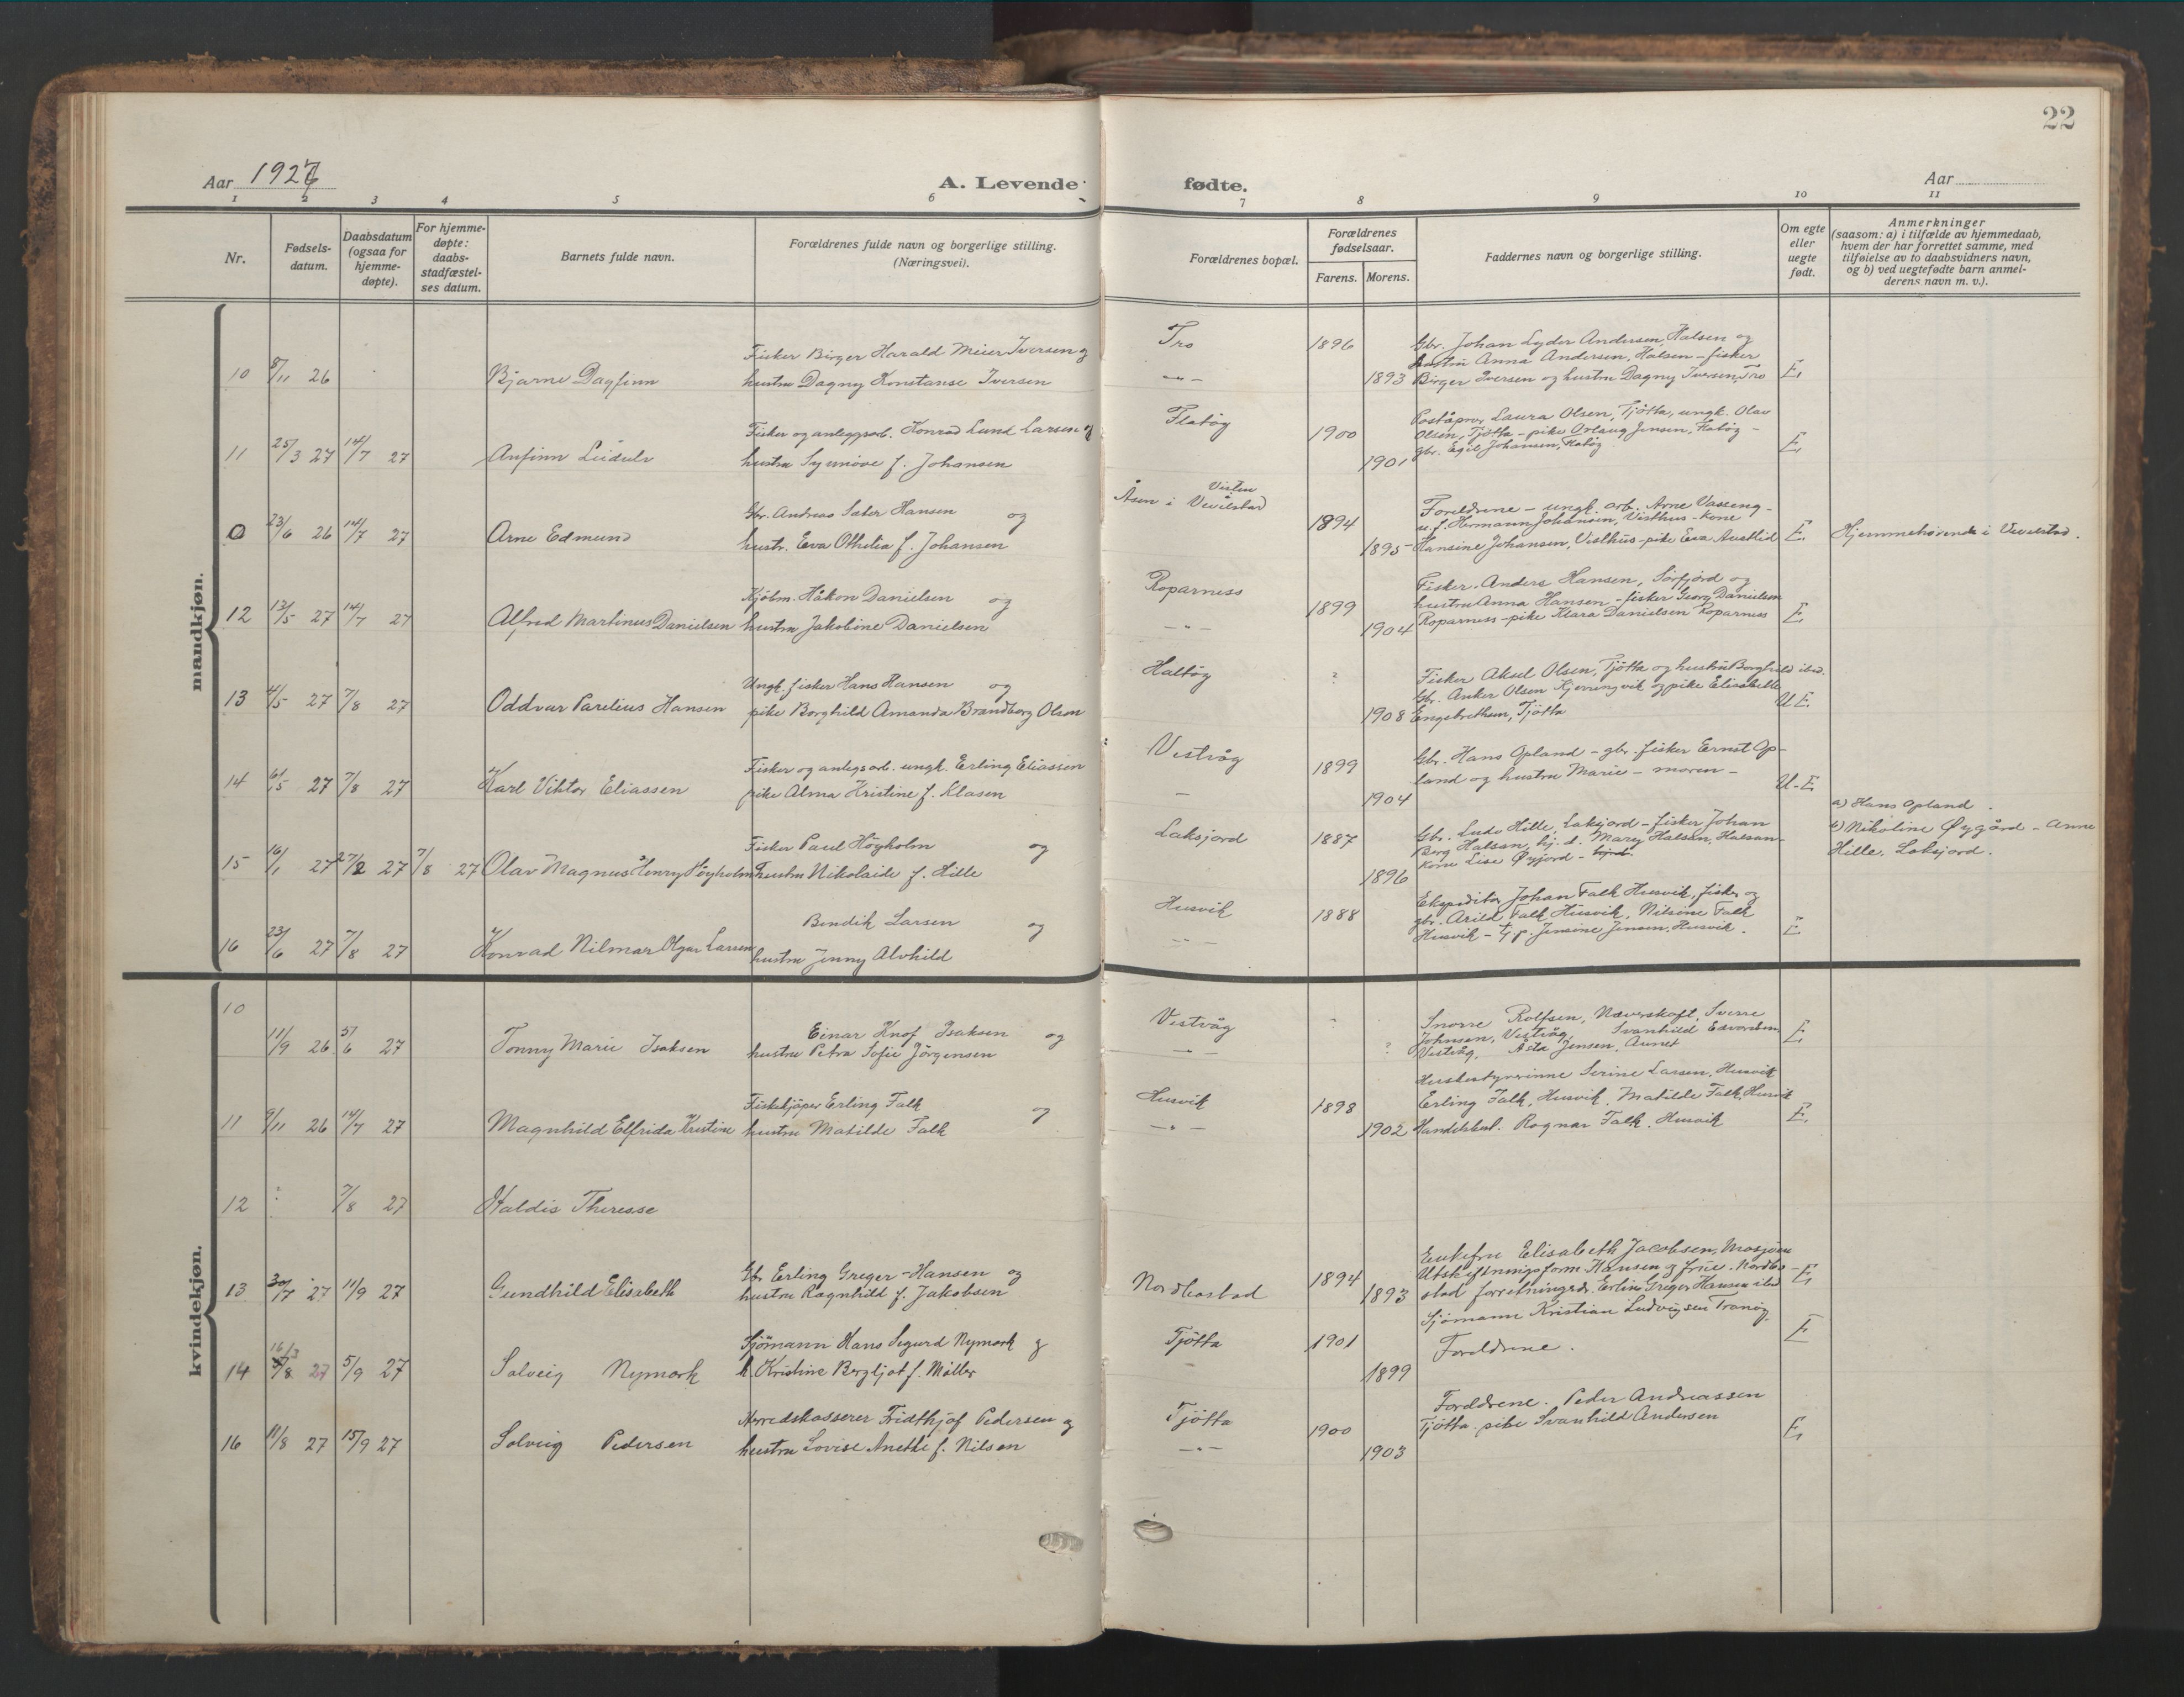 22
Aar 1927
A. Levende fødte.
Aar
1 2 3 4 5 6 7 8 9 10 11
Nr.
Fødsels-
datum.
Daabsdatum
(ogsaa for
hjemme-
døpte).
For hjemme-
døpte:
daabs-
stadfæstel-
ses datum.
Barnets fulde navn.
Forældrenes fulde navn og borgerlige stilling.
(Næringsvei).
Forældrenes bopæl.
Forældrenes
fødselsaar.
Farens. Morens.
Faddernes navn og borgerlige stilling.
Om egte
eller
uegte
født.
Anmerkninger
(saasom: a) i tilfælde av hjemmedaab,
hvem der har forrettet samme, med
tilføielse av to daabsvidners navn,
og b) ved uegtefødte barn anmel-
derens navn m. v.).
mandkjøn.
10 8/11 26 Bjarne Dagfinn
Fisker Birger Harald Meier Iversen og
hustru Dagny Konstanse Iversen
Tro
1896
1893
Gbr. Johan Lyder Andersen, Halsen og
hustru Anna Andersen, Halsen - fisker
Birger Iversen og hustru Dagny Iversen, Tro
E.
11 25/3 27 14/7 27 Anfinn Leidulv
Fisker og anleggsarb. Konrad Lund Larsen og
hustru Synnöve f. Johansen
Flatöy
1900
1901
Poståpner Laura Olsen, Tjötta, ungk. Olav
Olsen, Tjötta - pike Aslaug Jensen, Flatöy -
gbr. Egil Johansen, Flatöy
E.
0 23/6 26 14/7 27 Arne Edmund
Gbr. Andreas Sæter Hansen og
hustr. Eva Othelia f. Johansen
Visten
Åsen i Vevelstad
1894
1895
Foreldrene - ungk. arb. Arne Vasseng -
u.f. Hermann Johansen, Visthus - Kone
Hansine Johansen, Visthus - pike Eva Austlid
E.
Hjemmehørende i Vevelstad.
12 13/5 27 14/7 27 Alfred Martinus Danielsen
Kjöbm. Håkon Danielsen og
hustru Jakobine Danielsen
Roparness
1899
1904
Fisker Anders Hansen, Sörfjord og
hustru Anna Hansen - fisker Georg Danielsen
Roparness - pike Klara Danielsen Roparness
E.
13 4/5 27 7/8 27 Oddvar Parelius Hansen
Ungk. fisker Hans Hansen og
pike Borghild Amanda Brandborg Olsen
Haltöy
?
1908
Fisker Aksel Olsen, Tjötta og hustru Borghild ibid.
Gbr. Anker Olsen Kjerringvik og pike Elisabeth
Engebrethsen, Tjötta
U E.
14 6/5 27 7/8 27 Karl Viktor Eliassen
Fisker og anlegsarb. ungk. Erling Eliassen
pike Alma Kristine f. Klasen
Vistvåg
1899
1904
Gbr. Hans Opland - gbr. fisker Ernst Op-
land og hustru Marie - moren -
U-E
15 16/1 27 27/2 27 7/8 27 Olav Magnus Henry Höyholm
Fisker Paul Höyholm og
hustru Nikolaide f. Hille
Laksjord
1887
1896
Gbr. Ludv Hille, Laksjord - fisker Johan
Berg Halsan, hj. d. Mary Halsan, Halsan -
Kone Lise Øyjord -
a) Hans Opland.
b) Nikoline Øygård - Anne
Hille, Laksjord.
16 23/6 27 7/8 27 Konrad Nilmar Olgar Larsen
Bendik Larsen og
hustru Jenny Alvhild
Husvik
1888
Ekspeditör Johan Falk Husvik, fisker og
gbr. Arild Falk Husvik, Nilsine Falk
Husvik - tj.p. Jensine Jensen, Husvik.
E
kvindekjøn.
10 11/9 26 5/6 27 Tonny Marie Isaksen
Einar Knof Isaksen og
hustru Petra Sofie Jörgensen
Vistvåg
?
?
Snorre Rolfsen, Næverskaft, Sverre
Johnsen, Vistvåg, Svanhild Edvardsen
Vistvåg, Asta Jensen, Aunet
E
Husbestyrerinne Serine Larsen, Husvik
11 9/11 26 14/7 27 Magnhild Elfrida Kristine
Fiskekjöper Erling Falk og
hustru Matilde Falk
Husvik
1898
1902
Erling Falk, Husvik, Matilde Falk, Husvik
Handelsbest. Ragnar Falk, Husvik
E.
12 ? 7/8 27 Haldis Theresse
13 30/7 27 11/9 27 Gundhild Elisabeth
Gbr. Erling Greger-Hansen og
hustru Ragnhild f. Jakobsen
Nordbostad
1894
1893
Enkefru Elisabeth Jacobsen, Mosjöen
Utskiftningsform. Hansen og frue. Nordbo-
stad forretningsdr. Erling Greger Hansen ibid
Sjömann Kristian Ludvigsen Tranöy.
E
14 16/3 5/8 27 5/9 27 Solveig Nymark
Sjömann Hans Sigurd Nymark og
h. Kristine Bergljot f. Möller
Tjötta
1901
1899
Foreldrene.
E
16 11/8 27 15/9 27 Solveig Pedersen
Herredskasserer Fridthjof Pedersen og
hustru Lovise Anette f. Nilsen
Tjötta
1900
1903
Foreldrene. Peder Andreassen
Tjötta. pike Svanhild Andersen
E.